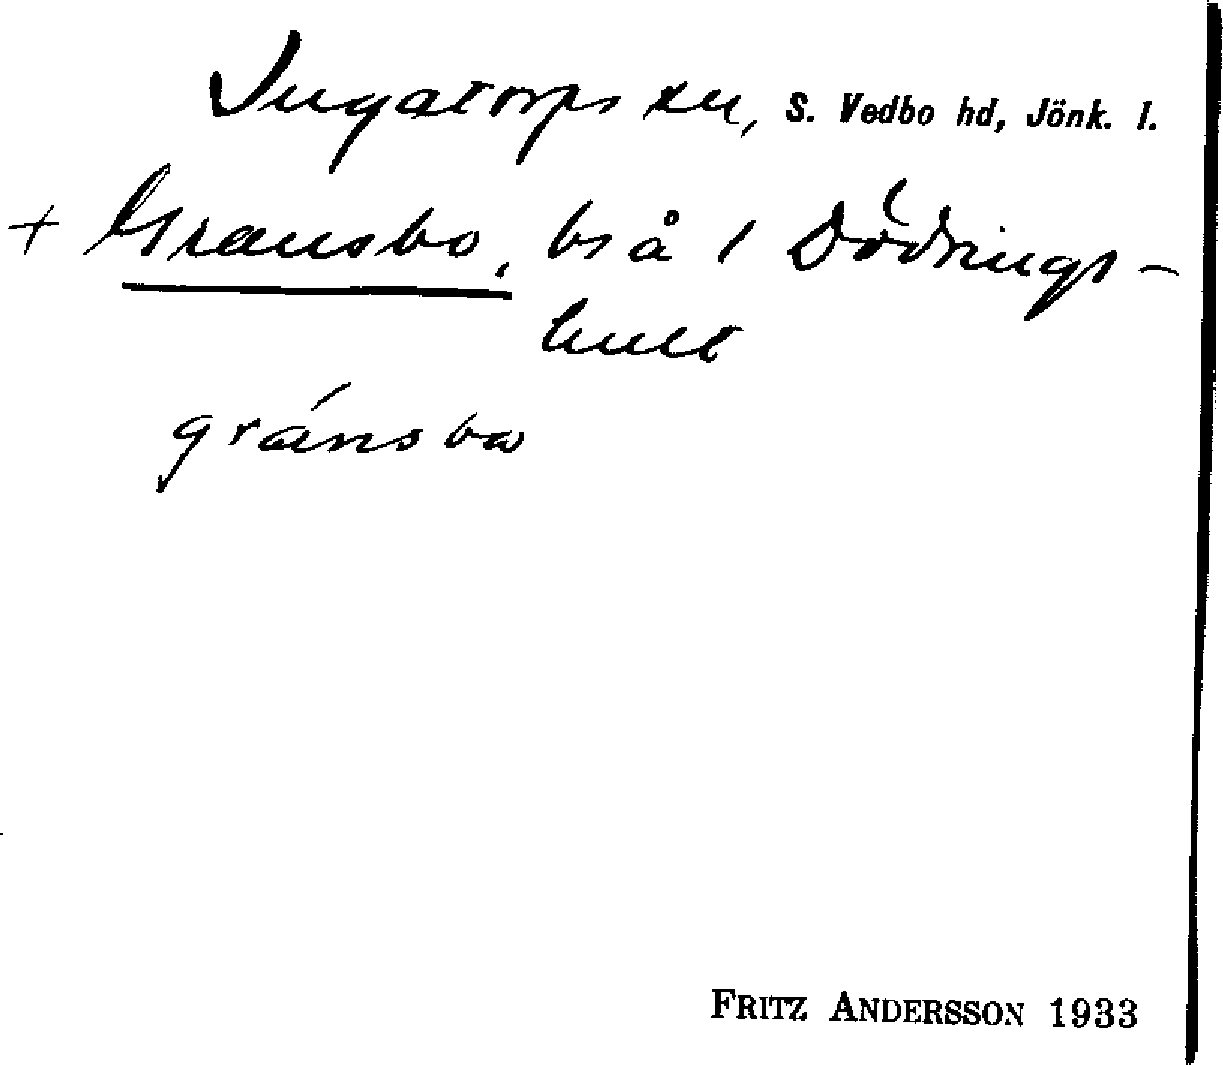 Ingatorps sn, S. Vedbo hd, Jönk. l.
+ Gransbo, bs å 1 Dödrings-
hult
gránsbω
FRITZ ANDERSSON 1933